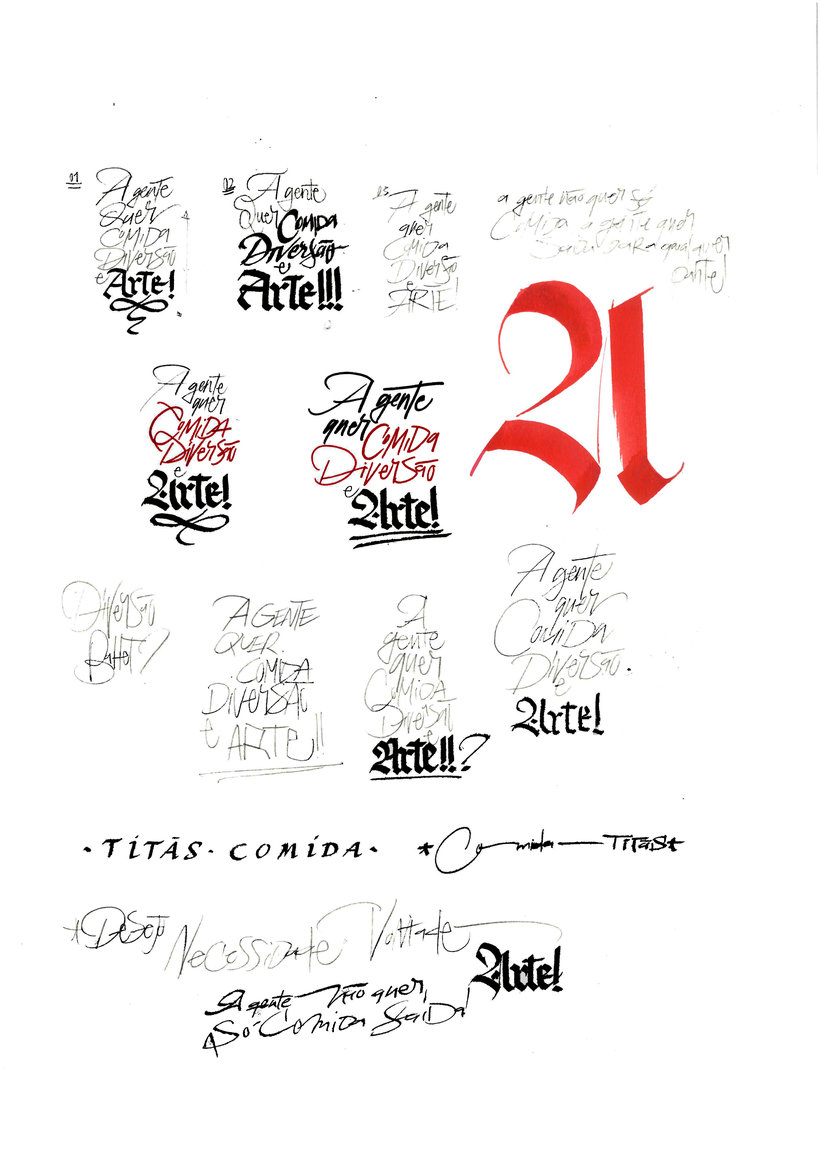 01
A gente
Quer
Comida
Diversão
e
Arte!
02
A gente
Quer Comida
Diversão
e
Arte!!!
03
A gente
quer
Comida
Diversão
e
ARTE!
a gente não quer só
Comida a gente quer
saída para qualquer
parte!
A
A gente
quer
COMIDA
Diversão
e
Arte!
A gente
quer COMIDA
Diversão
e
Arte!
Diversão
Balé?
A GENTE
QUER
COMIDA
DIVERSÃO
e ARTE!!
A
gente
quer
COMIDA
Diversão
e
Arte!!?
A gente
quer
Comida
Diversão.
e
Arte!
· TITÃS · COMIDA ·
* Comida — TITÃS *
* Desejo Necessidade Vontade
Arte!
A gente não quer
Só Comida